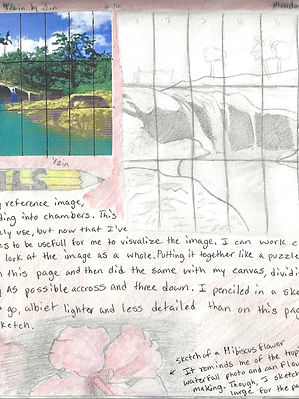 4½in by 3in
Monda
½in
y reference image,
ding into chambers. This
ely use, but now that I've
es to be usefull for me to visualize the image. I can work c
look at the image as a whole. Putting it together like a puzzle
n this page and then did the same with my canvas, dividin
y AS possible accross and three down. I penciled in a ske
t go, albiet lighter and less detailed than on this pag
ketch.
sketch of a Hibiscus flower
It reminds me of the trop
waterfall photo and can flow
making. Though, I sketch
large for the pa